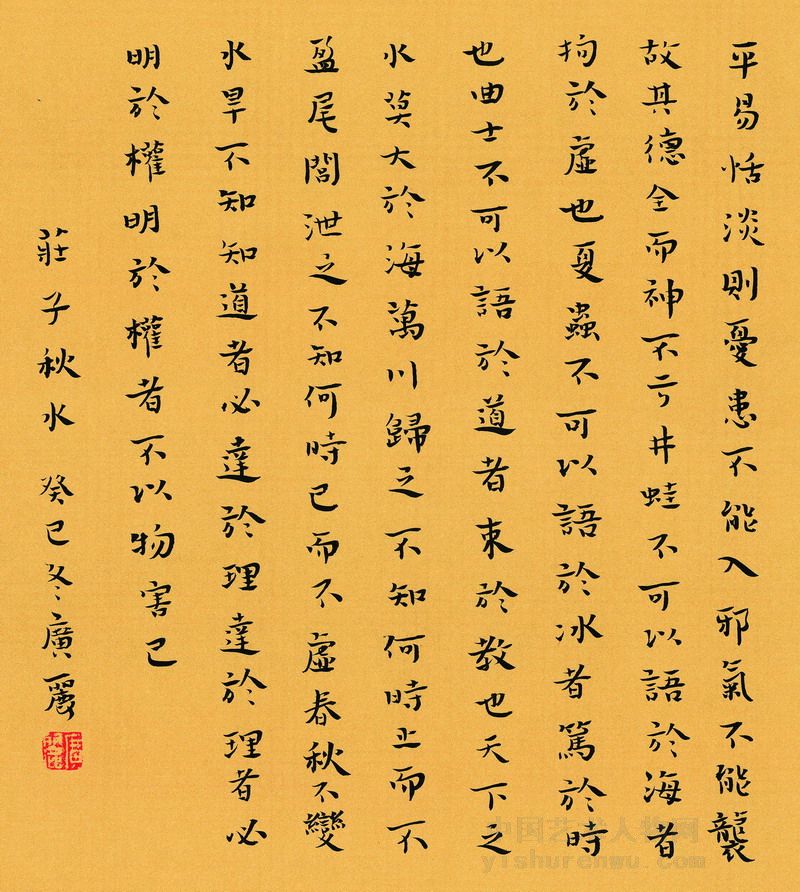 平易恬淡則憂患不能入邪氣不能襲
故其德全而神不亏井蛙不可以語於海者
拘於虛也夏蟲不可以語於冰者篤於時
也曲士不可以語於道者束於教也天下之
水莫大於海萬川歸之不知何時止而不
盈尾閭泄之不知何時已而不虛春秋不變
水旱不知知道者必達於理達於理者必
明於權明於權者不以物害己
莊子秋水 癸巳冬廣麗
中国艺术人物网
yishurenwu.com